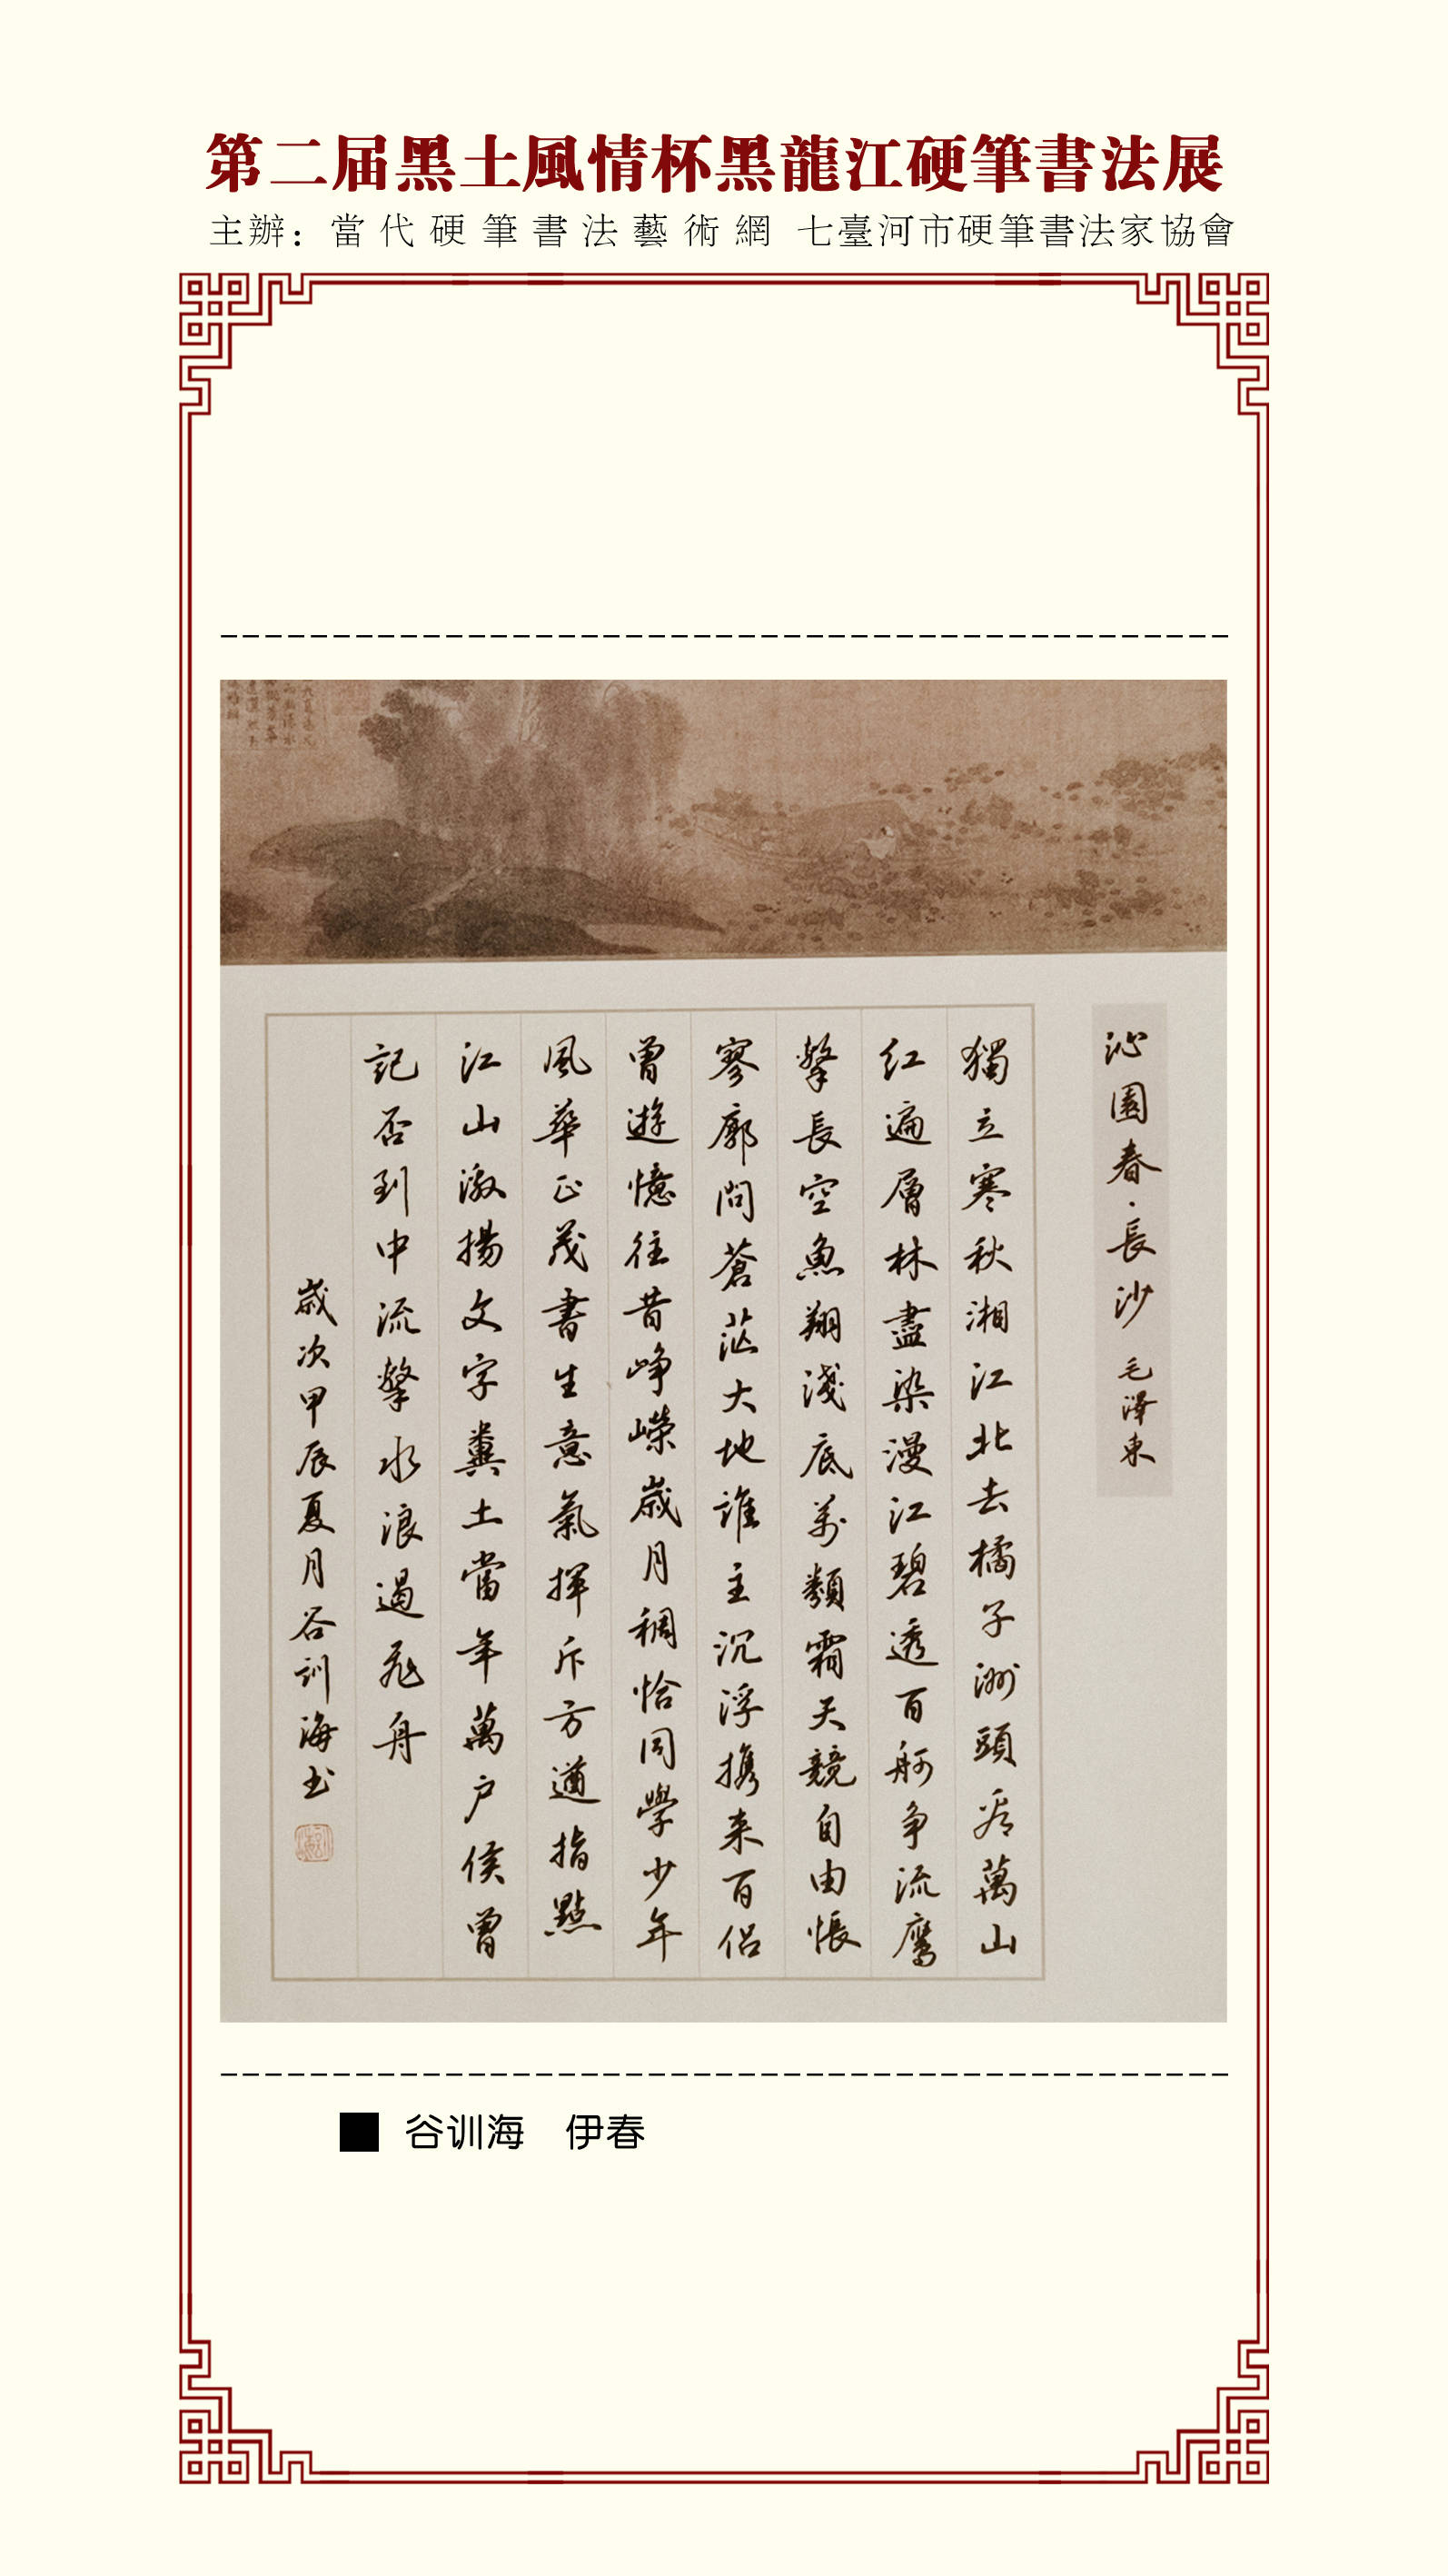 第二届黑土風情杯黑龍江硬筆書法展
主辦：當代硬筆書法藝術網 七臺河市硬筆書法家協會
沁園春·長沙 毛澤東
獨立寒秋湘江北去橘子洲頭看萬山
红遍層林盡染漫江碧透百舸争流鹰
擊長空魚翔淺底萬類霜天競自由悵
寥廓問蒼茫大地誰主沉浮携来百侣
曾遊憶往昔峥嶸歲月稠恰同學少年
風華正茂書生意氣揮斥方遒指點
江山激揚文字糞土當年萬户侯曾
記否到中流擊水浪遏飛舟
歲次甲辰夏月谷训海书
谷训海 伊春